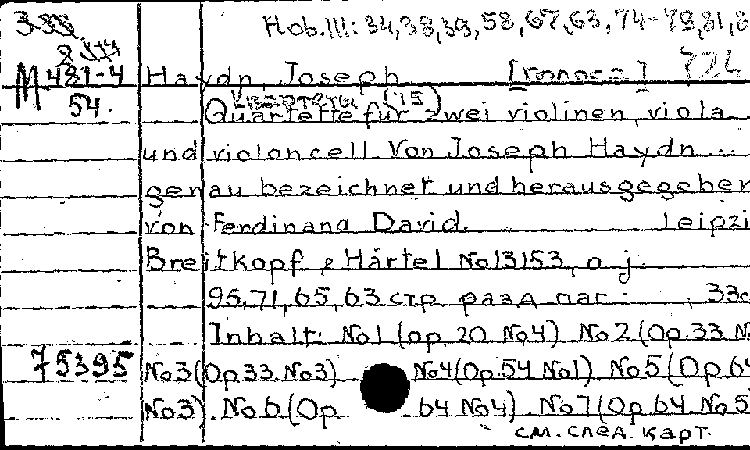 Hob.III: 34,38,39,58,67,63,74-79,81,8
M 481-4 Haydn, Joseph [голоса] 724
54. Квартеты (15)
Quartette für zwei violinen, viola
und violoncell. Von Joseph Haydn...
genau bezeichnet und herausgegeben
von Ferdinand David. Leipzi
Breitkopf & Härtel No13153, o. j.
95,71,65,63 стр. разд. паг. , 33с
Inhalt: No1 (op. 20 No4) No2 (Op. 33 N
75395 No3 (Op.33. No3) No4 (Op.54 No1) No5 (Op 64
No3). No6 (Op 64 No4). No7 (Op 64 No5
см. след. карт.